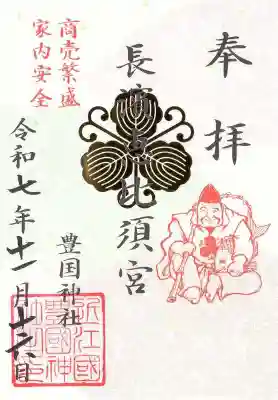 奉拝
商売繁盛
家内安全
長濱恵比須宮
豊国神社
令和七年十一月十六日
近江國
豊國神
社